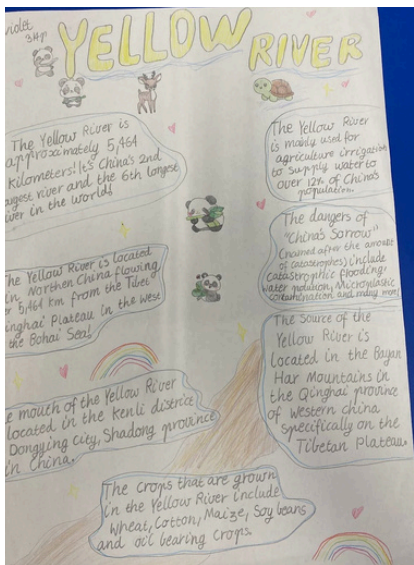 violet
3Hp
YELLOW RIVER
The Yellow River is
approximately 5,464
Kilometers! It's China's 2nd
largest river and the 6th longest
river in the world!
The Yellow River is located
in Northen China flowing
5,464 km from the Tibet
Qinghai Plateau in the west
the Bohai Sea!
mouth of the Yellow River
located in the Kenli district
Dongying city, Shadong province
in China.
The crops that are grown
in the Yellow River include
Wheat, Cotton, Maize, Soy beans
and oil bearing crops.
The Yellow River
is mainly used for
agriculture irrigation
to supply water to
over 12% of China's
population.
The dangers of
"China's Sorrow"
(named after the amount
of catastrophes) include
Catastrophic flooding,
water pollution, Microplastic
contamination and many more!
The source of the
Yellow River is
located in the Bayan
Har Mountains in
the Qinghai province
of Western china
Specifically on the
Tibetan Plateau.